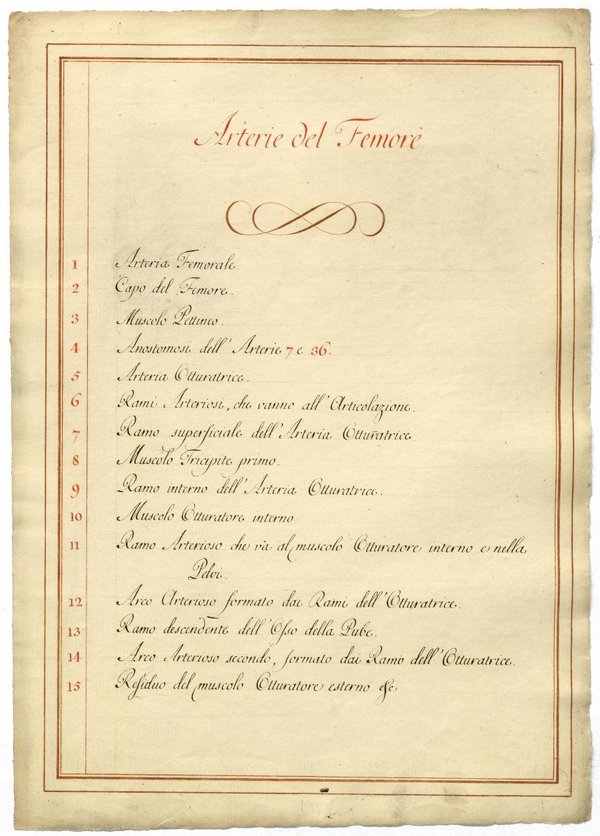 Arterie del Femore
1 Arteria Femorale.
2 Capo del Femore.
3 Muscolo Pettineo.
4 Anostomosi dell' Arterie 7 e 36.
5 Arteria Otturatrice.
6 Rami Arteriosi, che vanno all' Articolazione.
7 Ramo superficiale dell' Arteria Otturatrice
8 Muscolo Tricipite primo.
9 Ramo interno dell' Arteria Otturatrice.
10 Muscolo Otturatore interno
11 Ramo Arterioso che và al muscolo Otturatore interno e nella
Pelvi.
12 Arco Arterioso formato dai Rami dell' Otturatrice.
13 Ramo descendente dell' Osso della Pube.
14 Arco Arterioso secondo, formato dai Ramò dell' Otturatrice.
15 Residuo del muscolo Otturatore esterno &c.